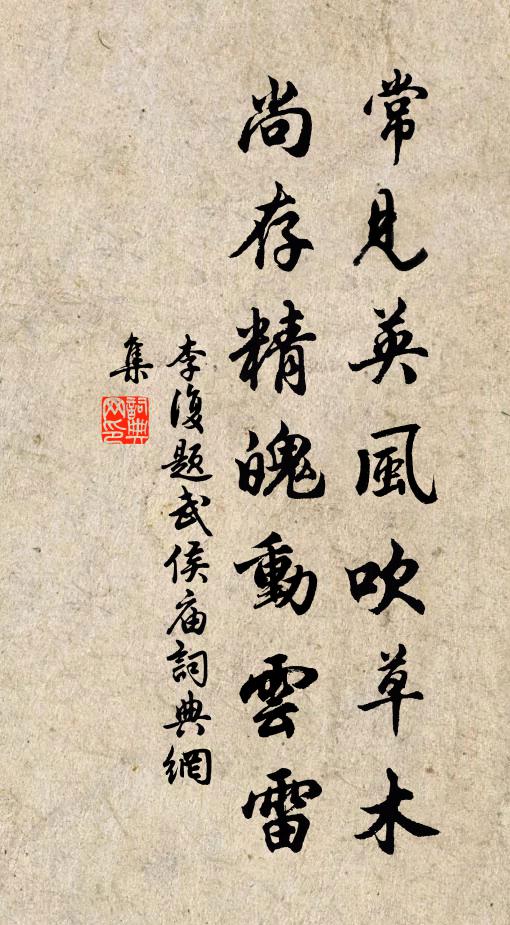 常見英風吹草木
尚存精魄動雲雷
李復題武侯庙詞典網
集
詞典
网印